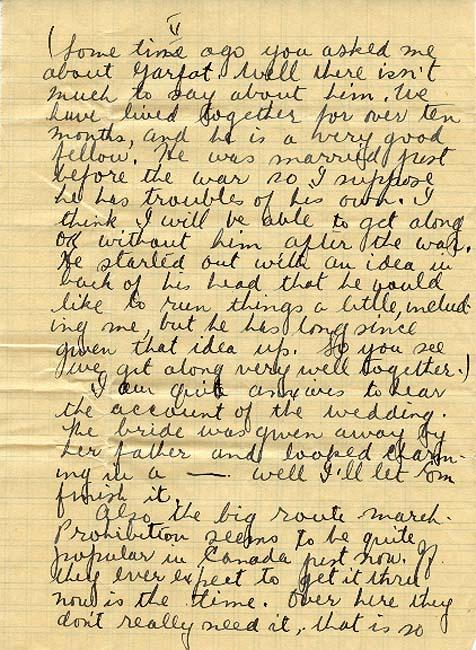 V
(Some time ago you asked me
about Garfat. Well there isn't
much to say about him. We
have lived together for over ten
months, and he is a very good
fellow. He was married just
before the war so I suppose
he has troubles of his own. I
think I will be able to get along
OK without him after the war.
He started out with an idea in
back of his head that he would
like to run things a little, includ-
ing me, but he has long since
given that idea up. So you see
we get along very well together.)
I am quite anxious to hear
the account of the wedding.
The bride was given away by
her father and looked charm-
ing in a — well I'll let
finish it.
Also the big route march.
Prohibition seems to be quite
popular in Canada just now. If
they ever expect to get it thru
now is the time. Over here they
don't really need it, that is so